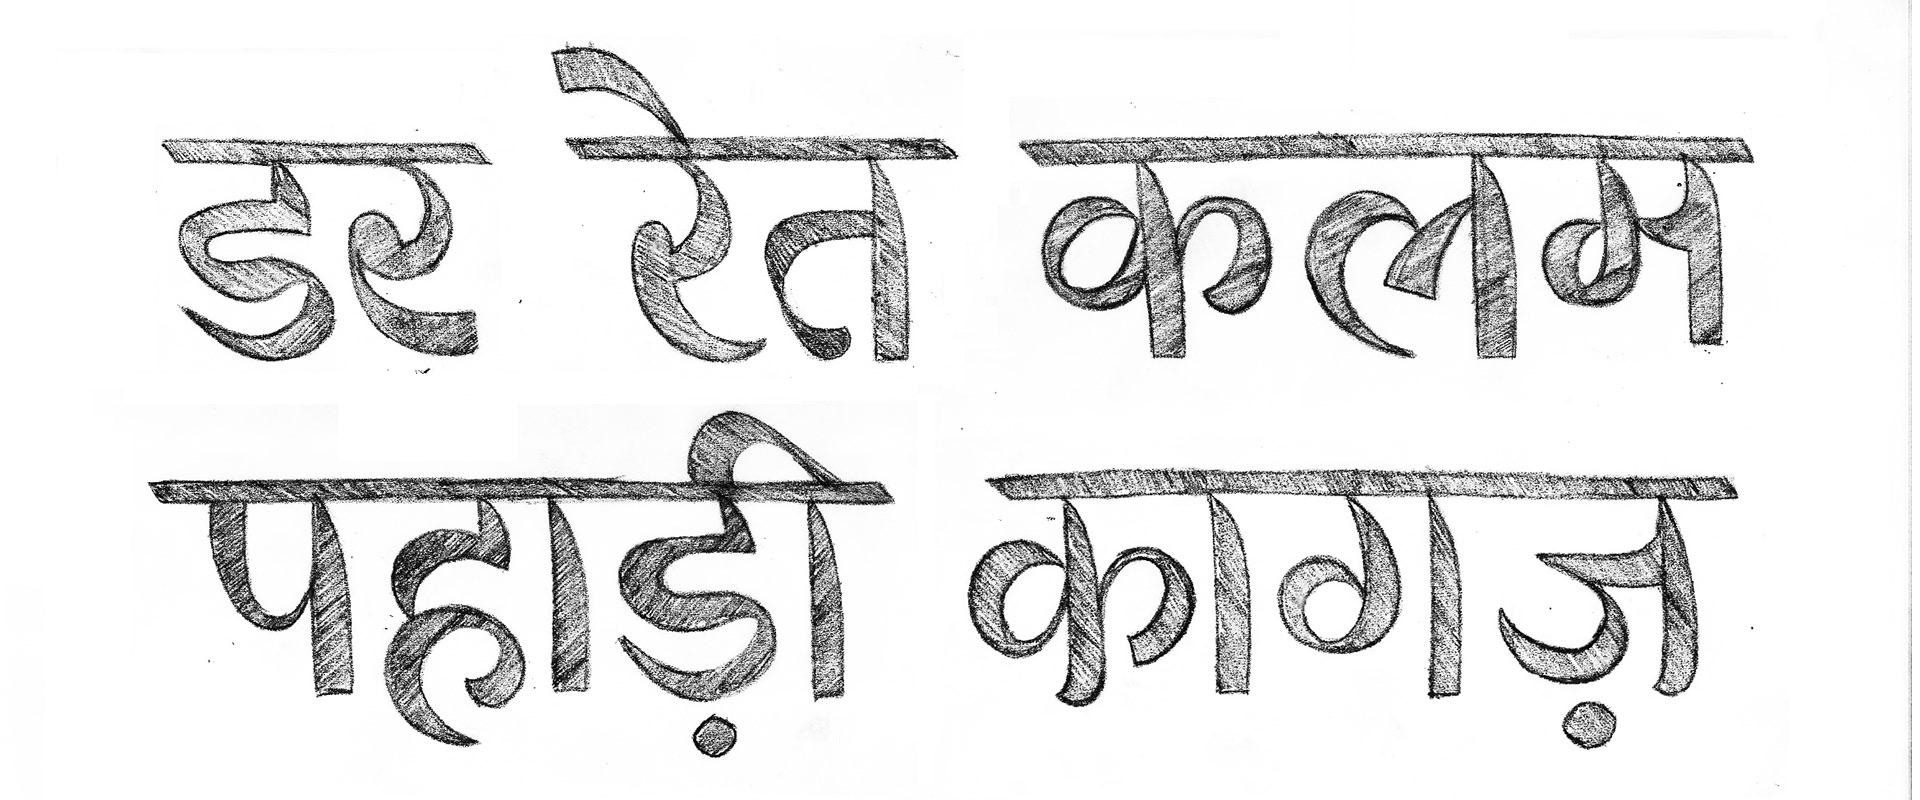 डर रेत कलम
पहाड़ी कागज़